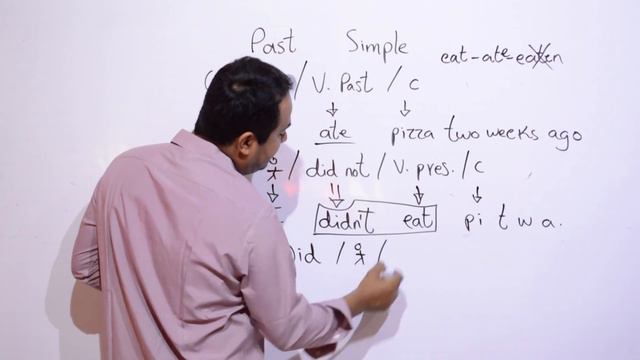 Past Simple
eat-ate-eaten
/ V. Past / C
ate pizza two weeks ago
/ did not / V. pres. / C
didn't eat pi t w a.
id / /